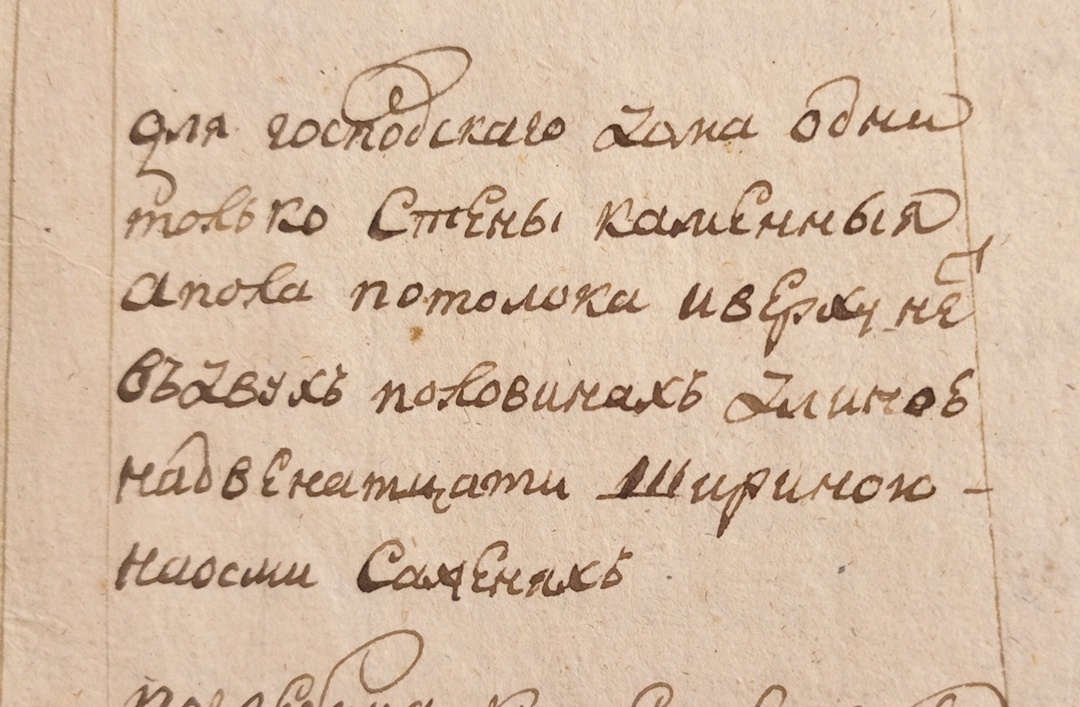 для господскаго дома одни
только стены каменныя
апола потолока иверху нет
въдвухъ половинахъ длиною
надвенатцати шириною -
наосми саженяхъ